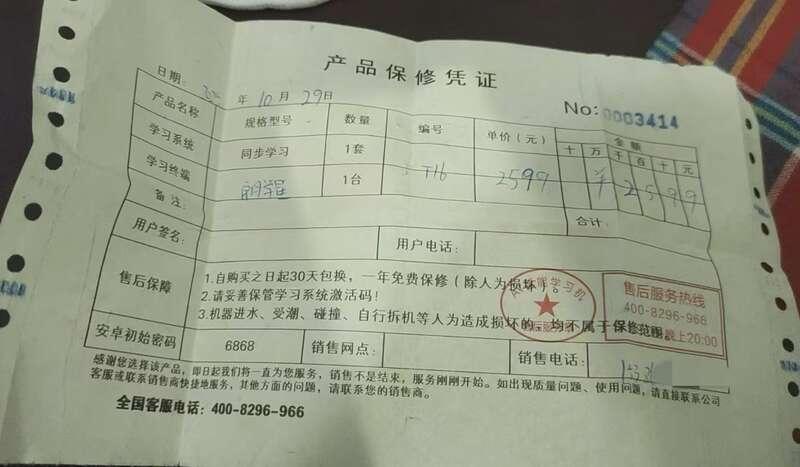 产品保修凭证
日期: 年10月29日
No:0003414
产品名称 规格型号 数量 编号 单价(元) 金额
十 万 千 百 十 元
学习系统 同步学习 1套
学习终端 1台 T16 2599 ¥ 2 5 9 9
备注: 合计:
用户签名: 用户电话:
售后保障
1.自购买之日起30天包换,一年免费保修(除人为损坏)。
2.请妥善保管学习系统激活码!
3.机器进水、受潮、碰撞、自行拆机等人为造成损坏的,均不属于保修范围。
学习机
售后服务热线
400-8296-966
晚上20:00
安卓初始密码 6868 销售网点: 销售电话:
感谢您选择该产品,即日起我们将一直为您服务,销售不是结束,服务刚刚开始。如出现质量问题、使用问题,请直接联系公司
客服或联系销售商快捷地服务,其他方面的问题,请联系您的销售商。
全国客服电话:400-8296-966